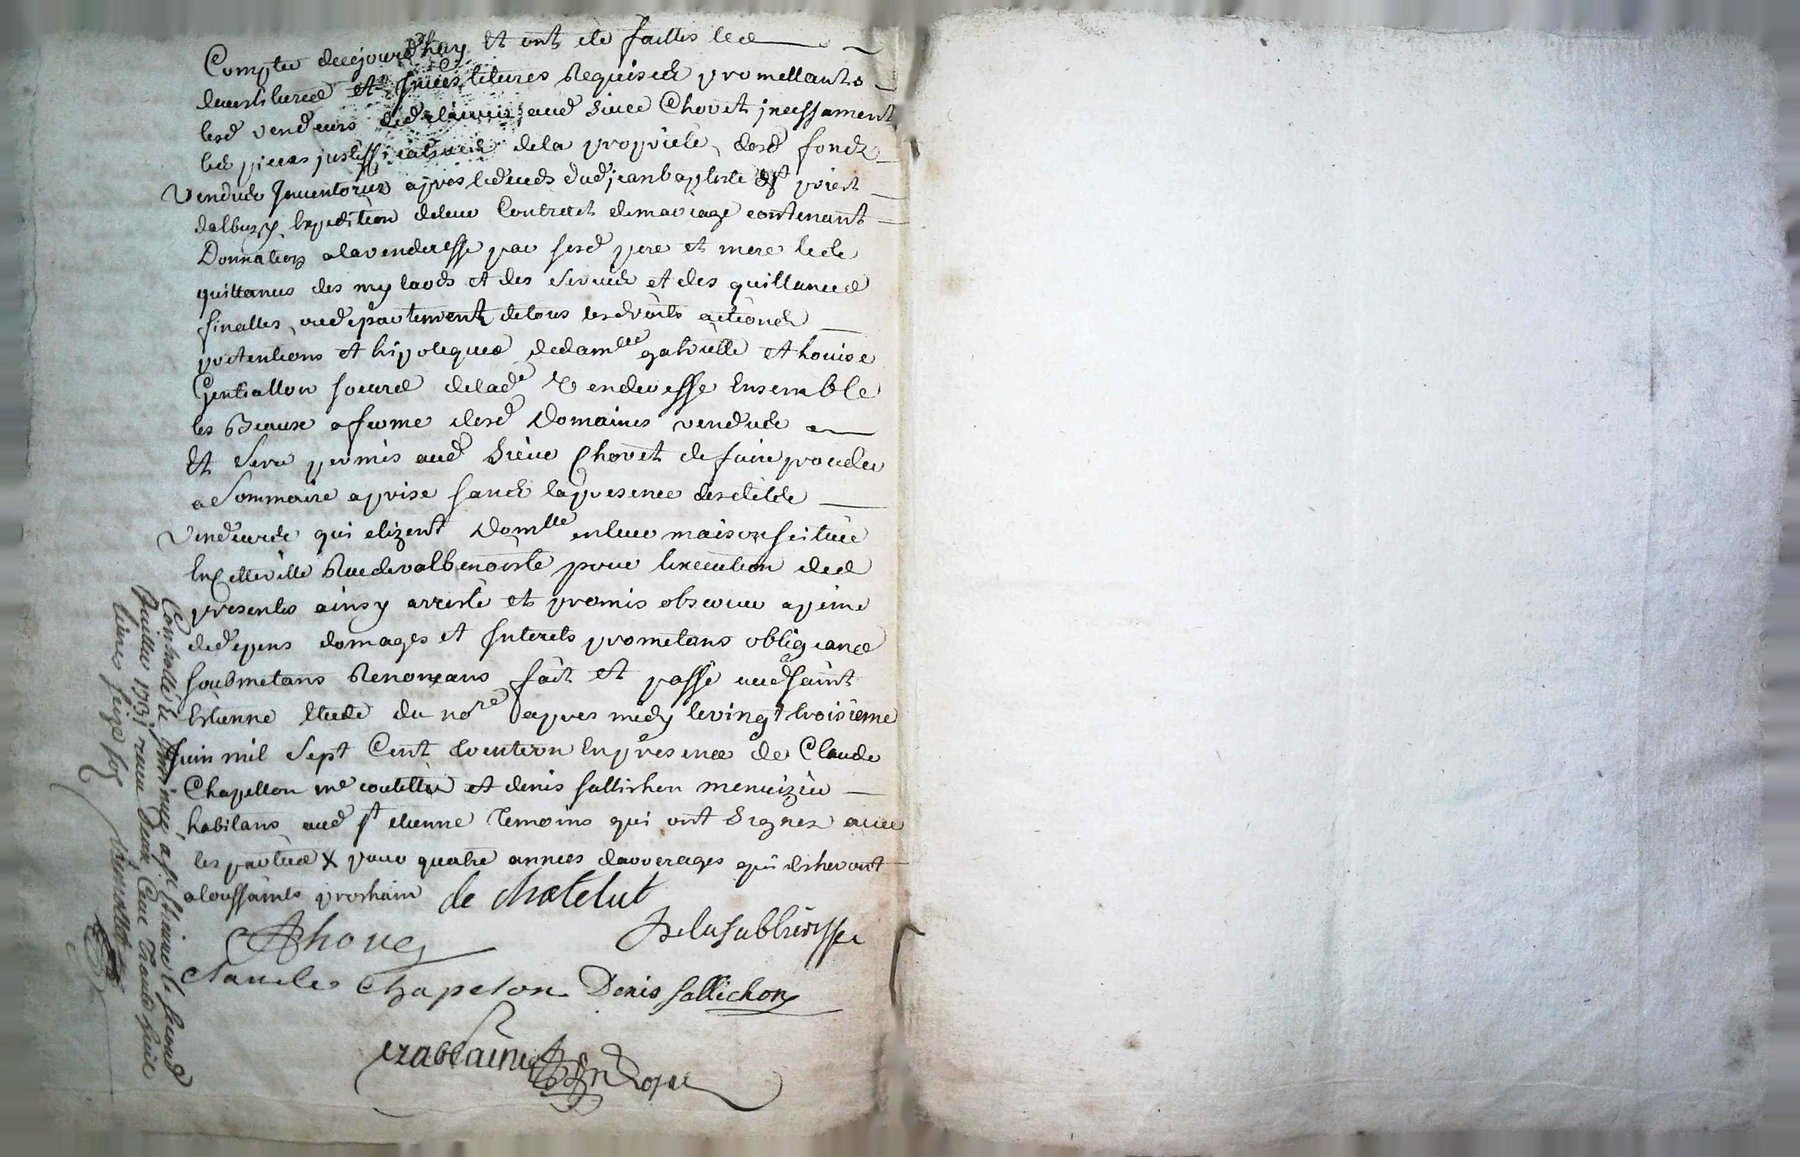 Compter decejourd'huy Et ont ete faittes les
devestitures et Investitures Requises promettants
lesd vendeurs aud Sieur Chovet incessament
les pieces justifficatives dela propriété desd fonds
Vendus Inventoriez apres le deces dud jean baptiste
expedition deleur Contract demariage contenant
Donnation alavenderesse par sesd pere et mere
quittances des my lauds et des Servis et des quittances
finalles, ou departement detous les droits actions
pretentions et hipoteques dedamlle gabrielle Et Louise
soeurs delade Venderesse Ensemble
les Beaux aferme desd Domaines vendus
Et Sera permis aud Sieur Chovet defaire proceder
a Sommaire aprise sans la presence desdits
Vendeurs qui elizent Domlle enleur maison scituée
En cetteville Rue devalbenoiste pour lexecution des
presentes ainsy arresté et promis observer apeine
dedepens domages et Interets prometans obligeans
soubmetans Renonçans fait et passé aud saint
Etienne Etude du nore apres midy levingt troisieme
Juin mil Sept Cent trente un En presence de Claude
Chapellon me coutellier et denis sallichon menuizier
habitans aud st etienne Temoins qui ont Signez avec
les parties X pour quatre annees darrerages qui echeront
a toussaints prochain de chatelut
Chovet Delasablieresse
Claude Chapelon Denis Sallichon
Controllé a st Etienne le second
Juillet 1731 receu Deux Cent Trante
livres seize sols